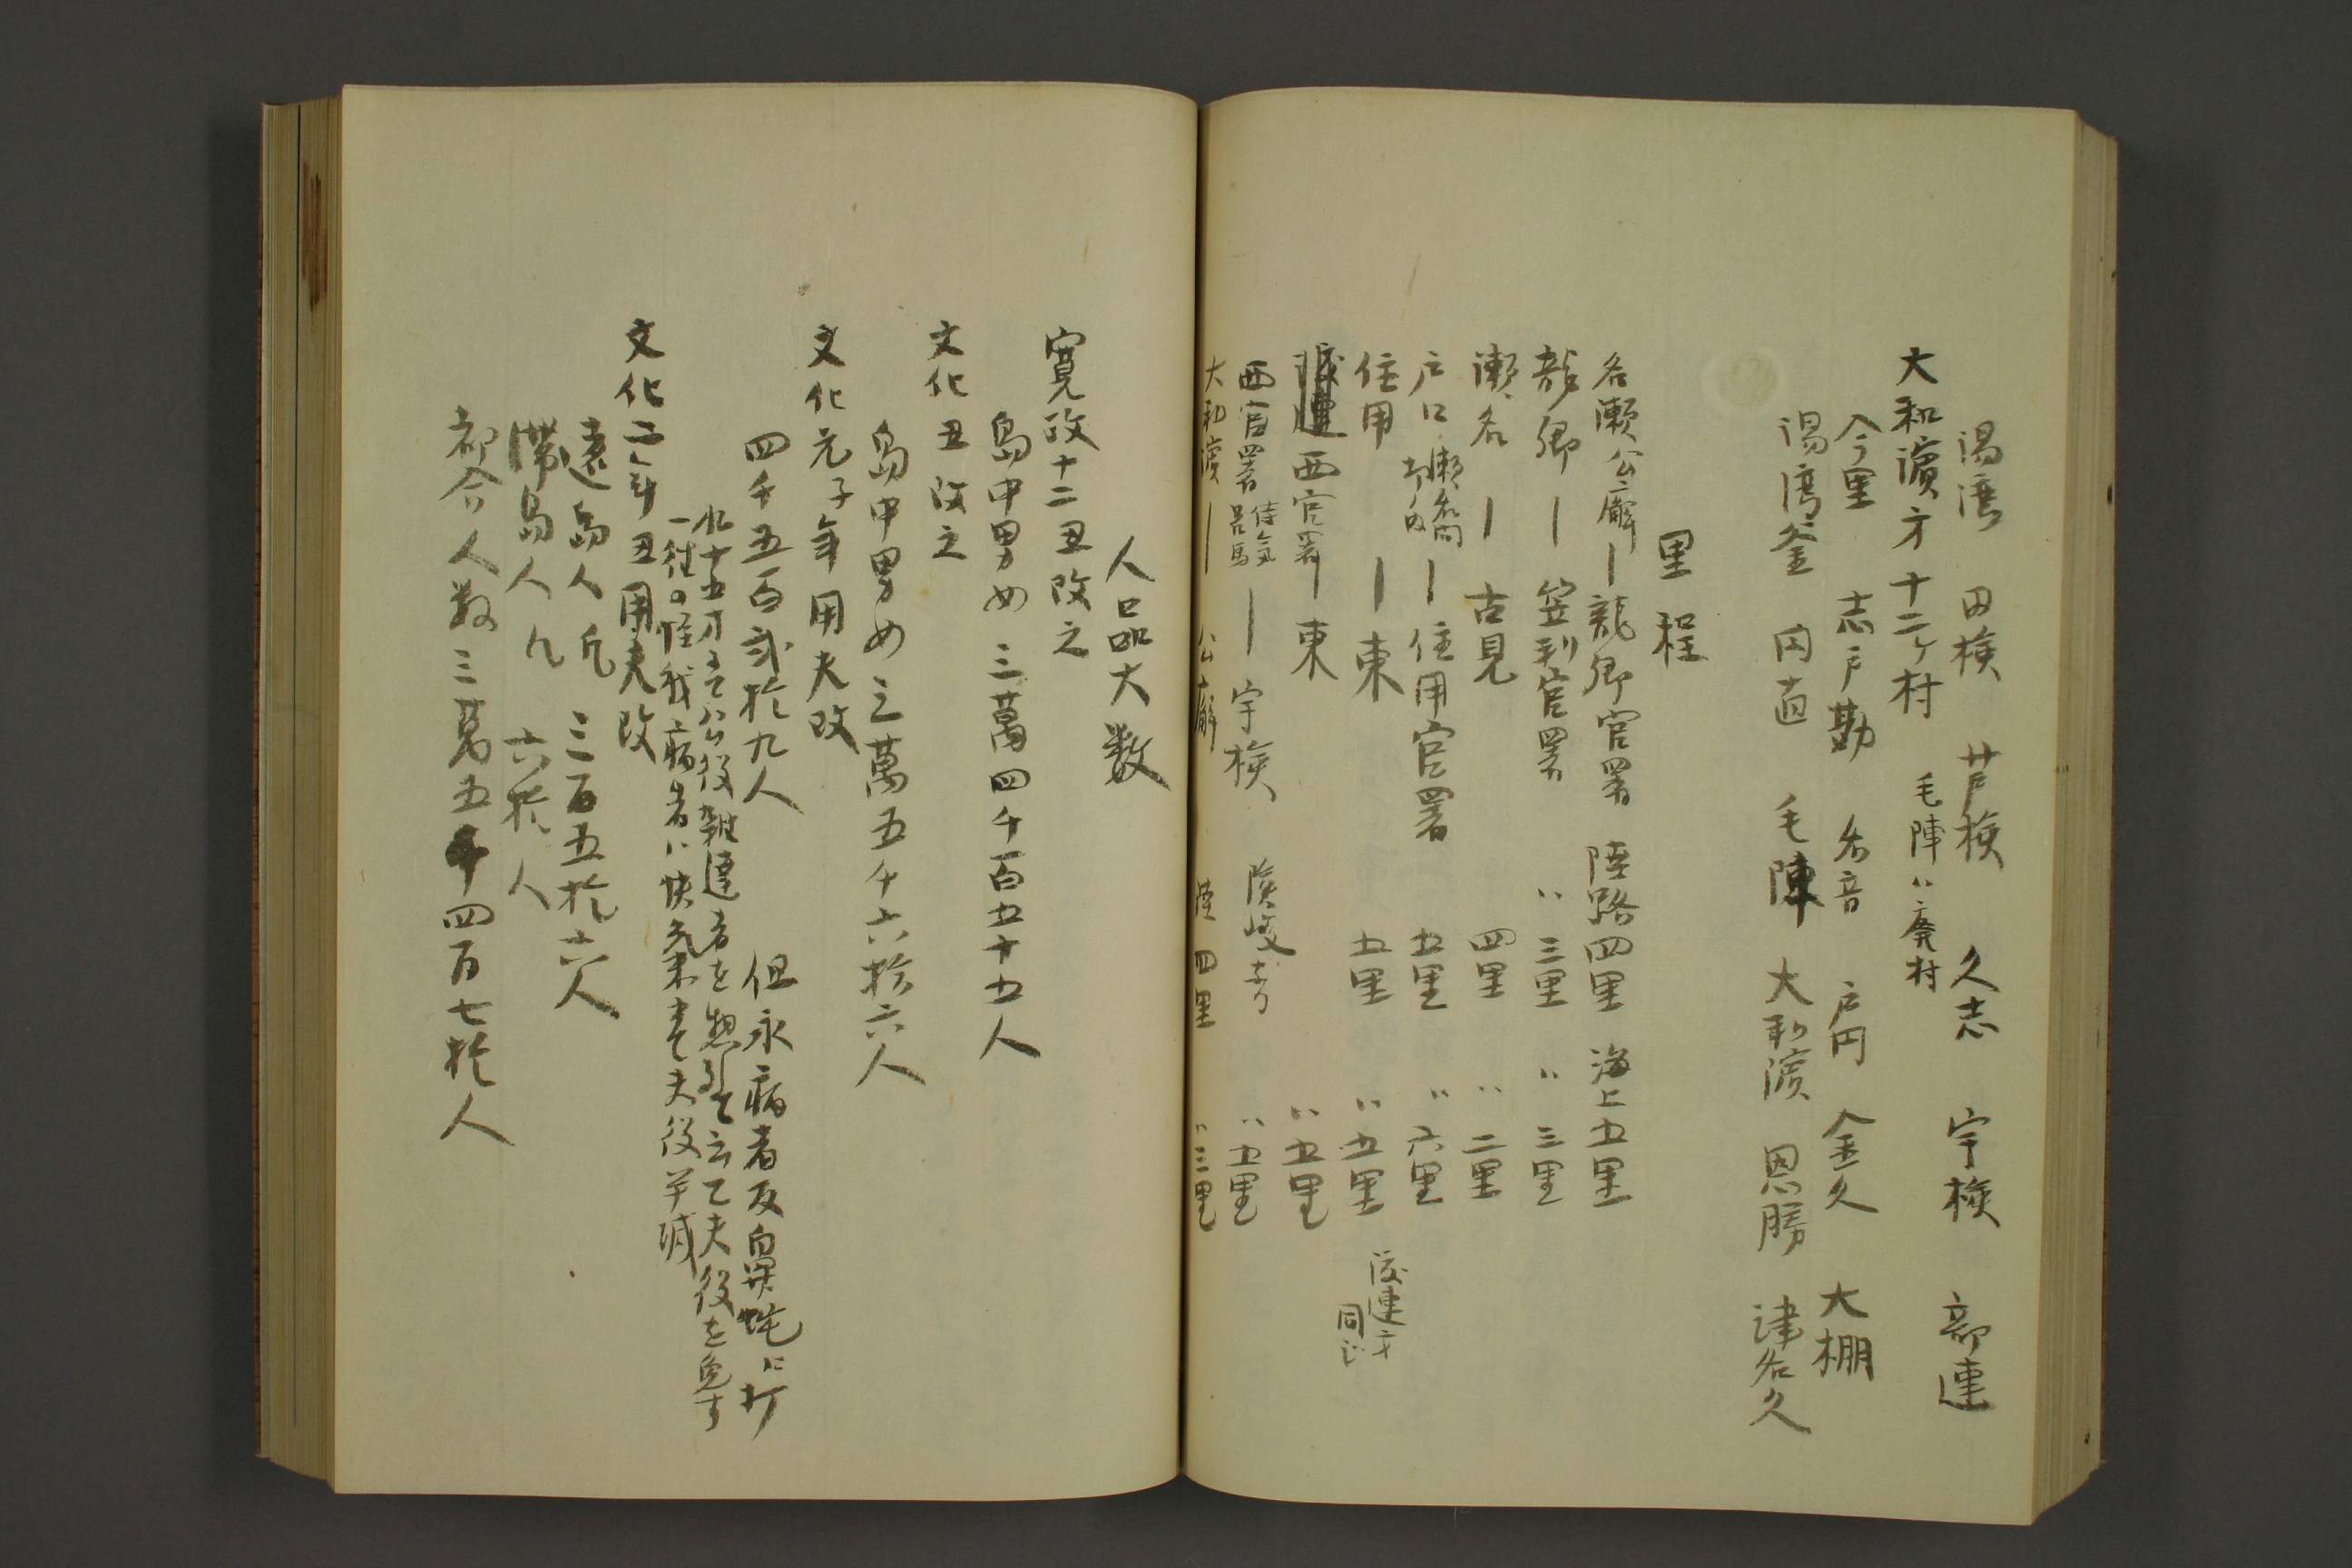 湯湾 田検 芦検 久志 宇検 部連
大和濱方十二ケ村 毛陣ハ廃村
今里 志戸勘 名音 戸円 金久 大棚
湯湾釜 円直 毛陣 大和濱 恩勝 津名久
里程
名瀬公廨―龍郷官署 陸路四里 海上五里
龍郷―笠利官署 〃三里 〃三里
瀬名―古見 四里 〃二里
戸口―住用官署 五里 〃六里
住用―東 五里 〃五里
西官署―東 〃五里
西官署―宇検 〃五里
大和濱―公廨 陸四里 〃三里
人品大数
寛政十二丑改之
島中男女三萬四千百五十五人
文化丑改之
島中男女三萬五千六拾六人
文化元子年用夫改
四千五百弐拾九人
但永病者反鼻蛇ニ打
一往の怪我病者ハ快気迄夫役半減
文化二年丑用夫改
遠島人凡三百五拾六人
帯島人凡六拾人
都合人数三萬五千四百七拾人